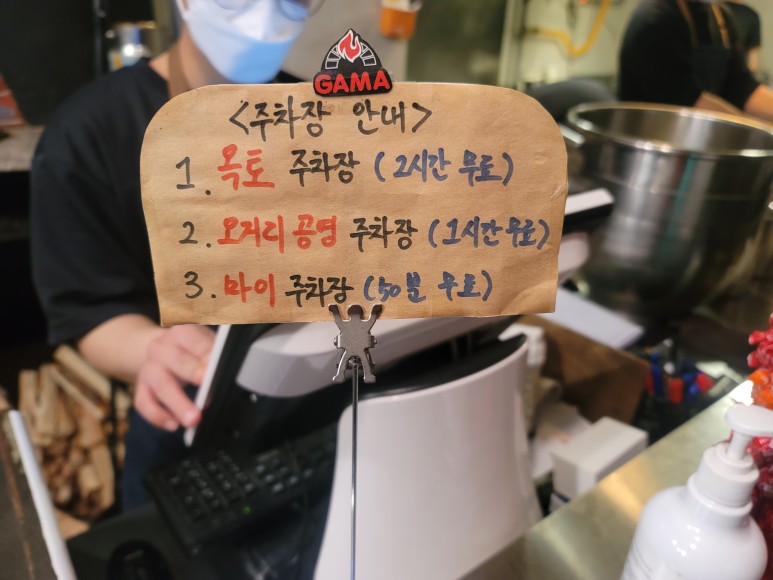 GAMA
<주차장 안내>
1. 옥토 주차장 (2시간 무료)
2. 오거리공영 주차장 (1시간무료)
3. 마이 주차장 (50분 무료)